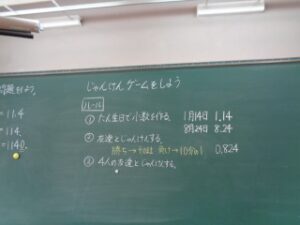 じゃんけんゲームをしよう
ルール
① たん生日で小数を作る。 1月14日 1.14
8月24日 8.24
② 友達とじゃんけんする。
勝ち→10倍 負け→10分の1 0.824
③ 4人の友達とじゃんけんする。
= 11.4
= 114.
= 1140.